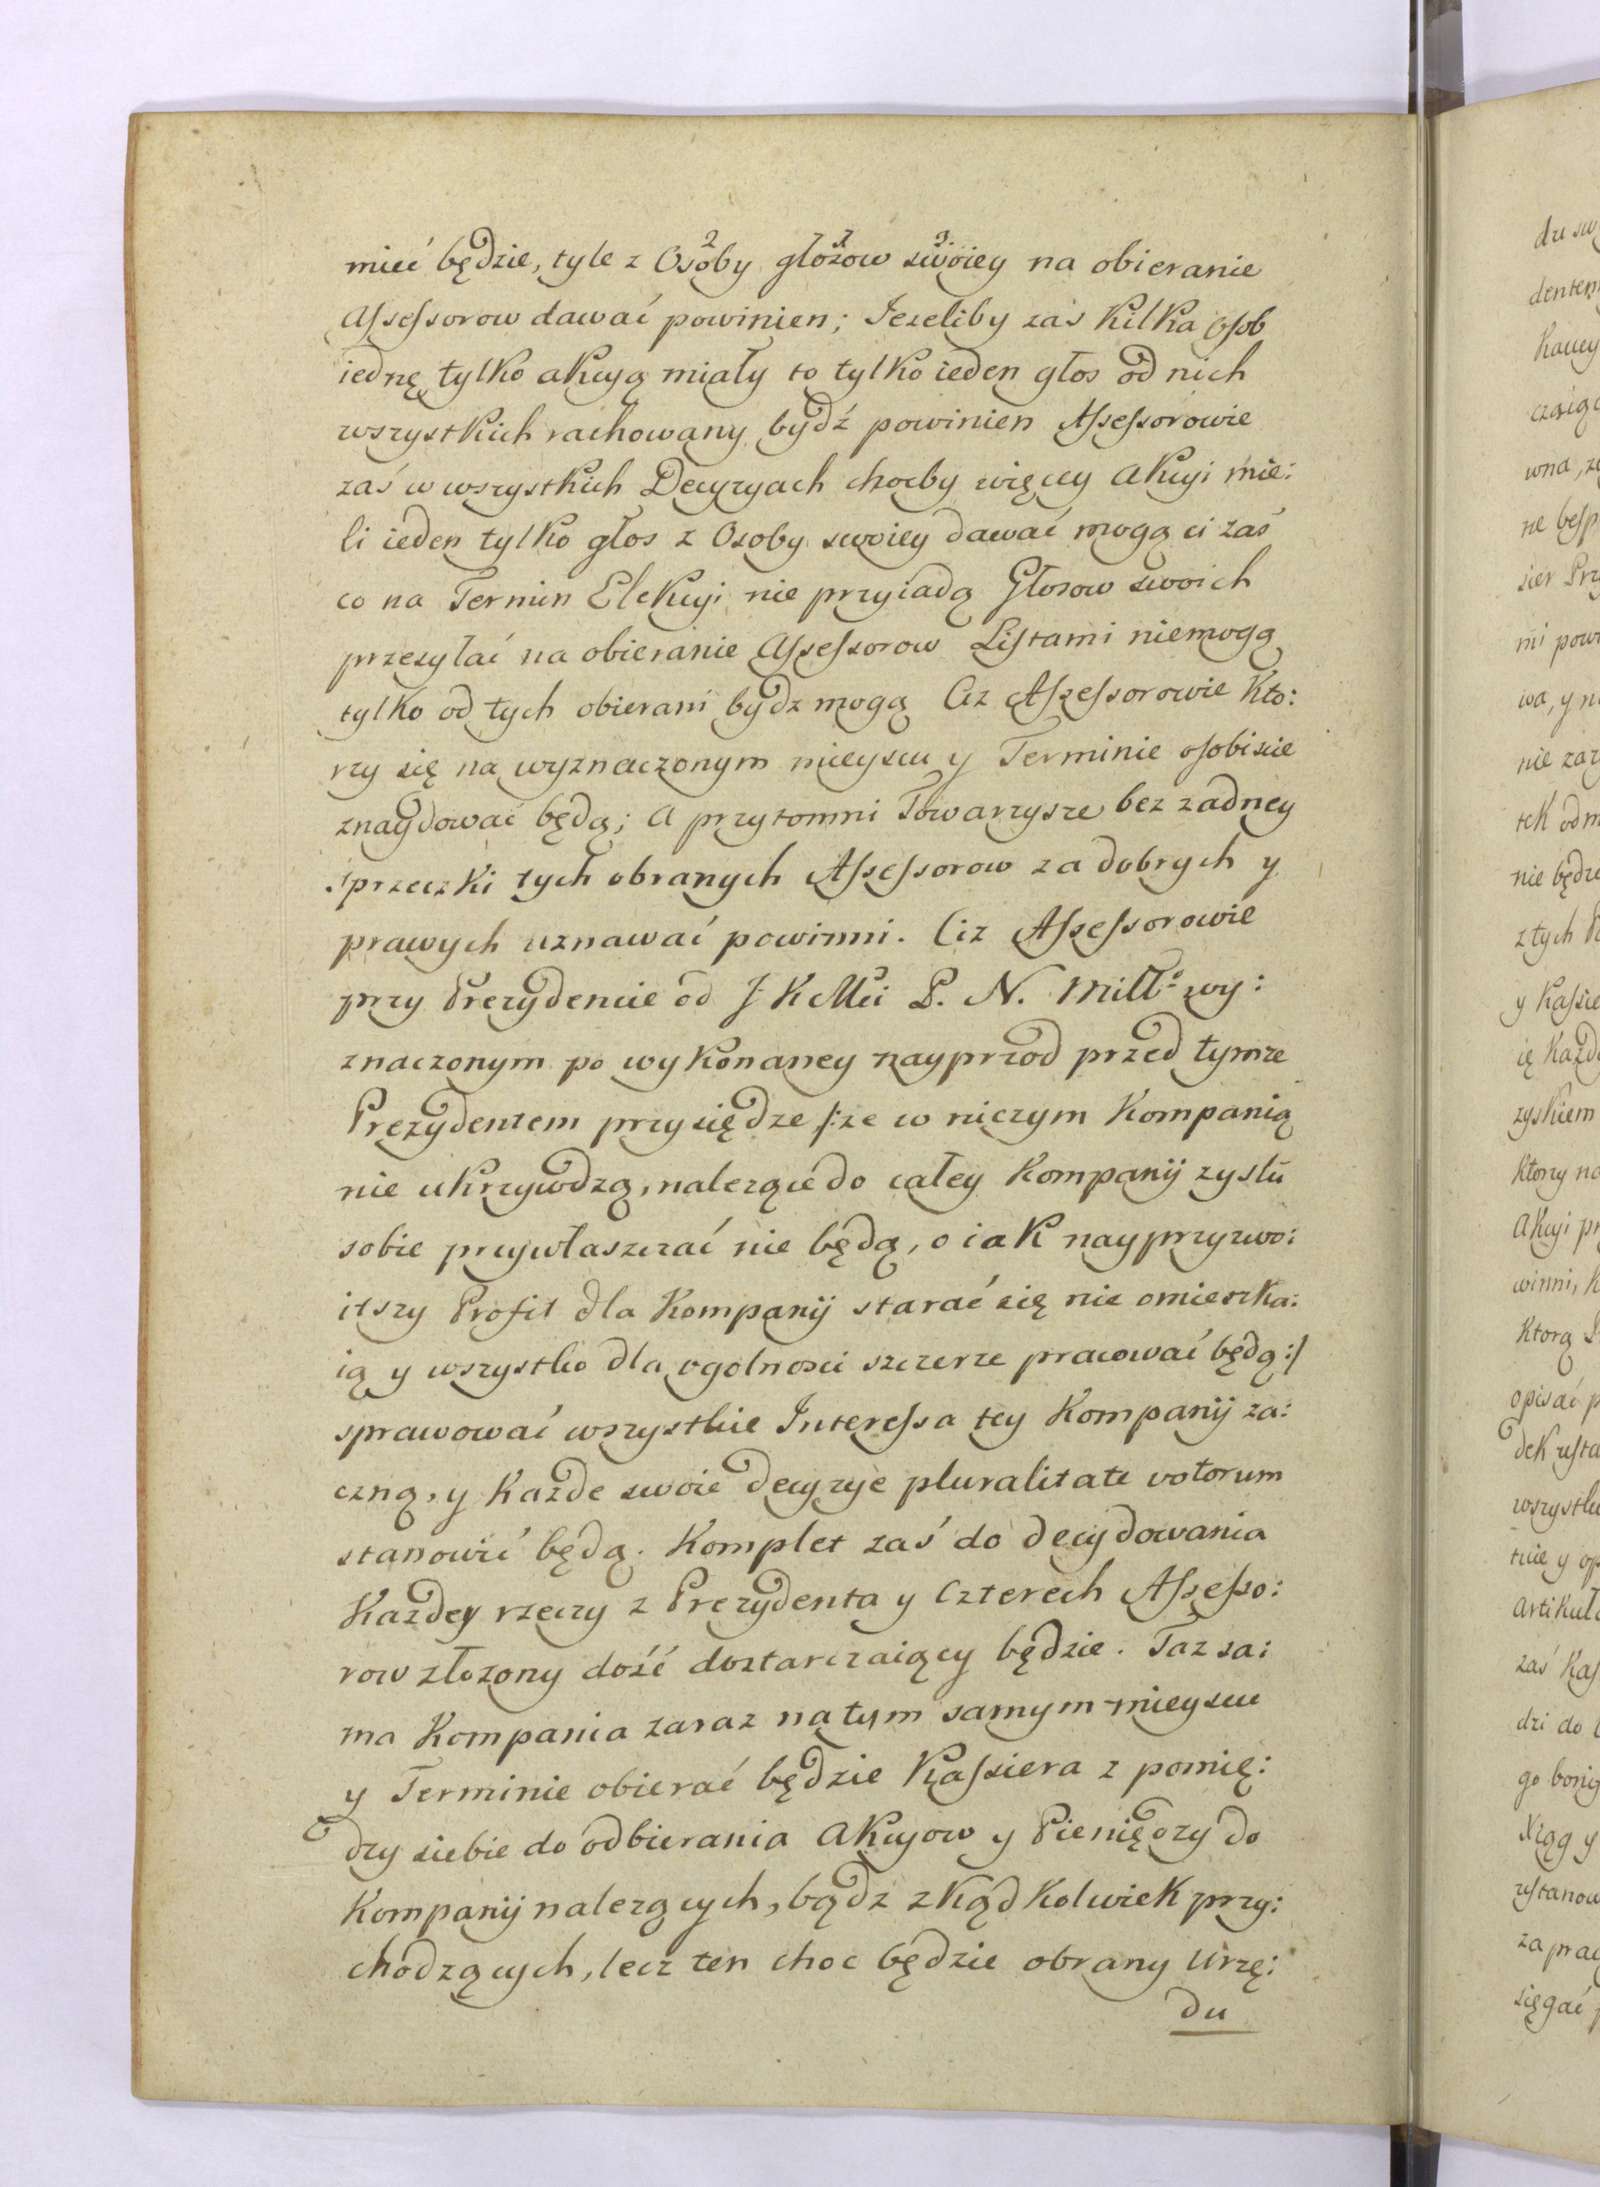 mieć będzie, tyle z Osoby głosow swoiey na obieranie
Assessorow dawać powinien; Iezeliby zas Kilka Osob
iednę tylko akcyą miały to tylko ieden głos od nich
wszystkich rachowany bydź powinien Assessorowie
zaś w wszystkich Decyzyach choćby więcey Akcyi mie:
li ieden tylko głos z Osoby swoiey dawać mogą ci zaś
co na Termin Elekcyi nie przyiadą Głosow swoich
przesyłać na obieranie Assessorow Listami niemogą
tylko od tych obierani bydz mogą Ciz Assessorowie Kto:
rzy się na wyznaczonym mieyscu y Terminie osobiscie
znaydować będą; A przytomni Towarzysze bez zadney
sprzeczki tych obranych Assessorow za dobrych y
prawych uznawać powinni. Ciz Assessorowie
przy Prezydencie od J K Mci P. N. Miłł: wy:
znaczonym po wykonaney nayprzod przed tymze
Prezydentem przysiędze /:ze w niczym Kompanią
nie ukrzywdzą, nalezące do całey Kompanij zysku
sobie przywłaszczać nie będą, o iak nayprzyzwo:
itszy Profit dla Kompanij starać się nie omieszka:
ią y wszystko dla ogolnosci szczerze pracować będą:/
sprawować wszystkie Interessa tey Kompanij za:
czną, y Kazde swoie decyzye pluralitate votorum
stanowić będą. Komplet zaś do decydowania
Kazdey rzeczy z Prezydenta y Czterech Assesso:
row złozony dość dostarczaiący będzie. Taz sa:
ma Kompania zaraz na tym samym mieyscu
y Terminie obierać będzie Kassiera z pomię:
dzy siebie do odbierania Akcyow y Pieniędzy do
Kompanij nalezących, bądz zkąd kolwiek przy:
chodzących, lecz ten choc będzie obrany Urzę:
du